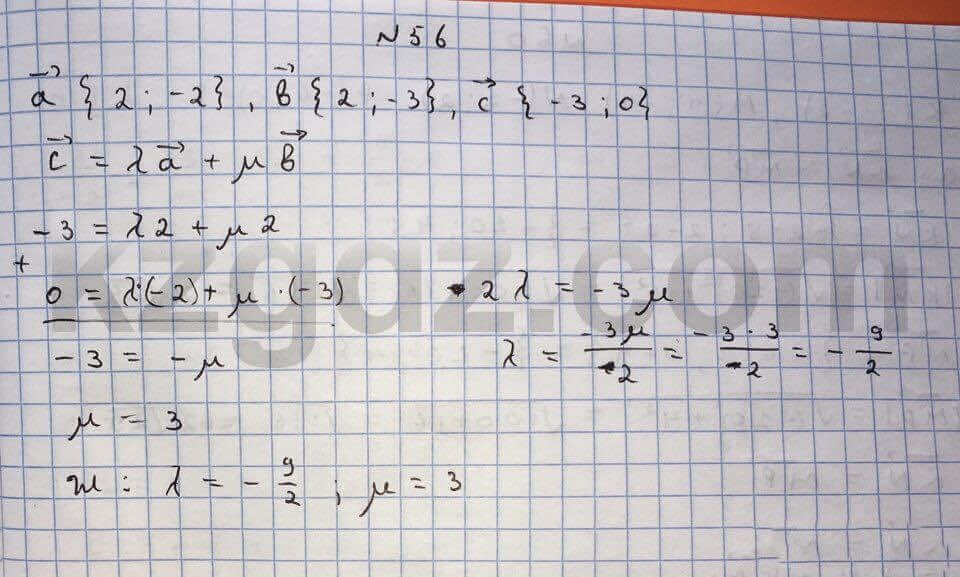 № 56
a⃗ {2 ; -2}, b⃗ {2 ; -3}, c⃗ {-3 ; 0}
c⃗ = λa⃗ + μb⃗
-3 = λ2 + μ2
+
0 = λ·(-2) + μ·(-3)
-3 = -μ
μ = 3
2λ = -3μ
λ = -3μ/-2 = -3·3/-2 = -9/2
Ж: λ = -9/2 ; μ = 3
kzgdz.com